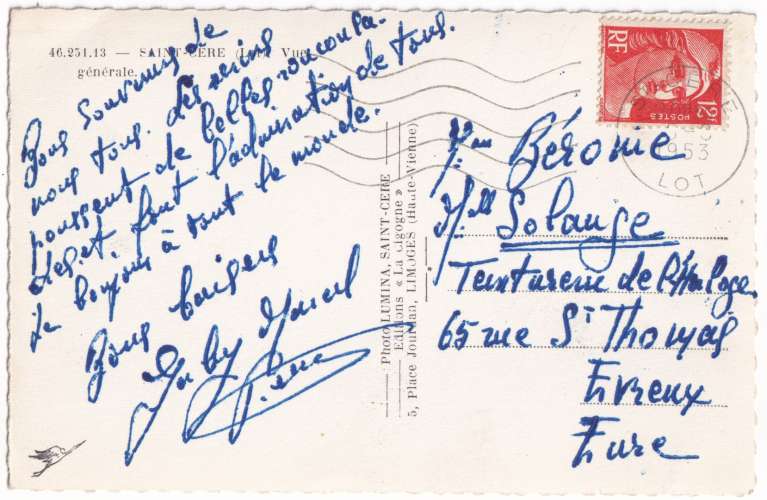 46.251.13 — SAINT-CÉRÉ (Lot) Vue
générale.
Bons souvenirs de
nous tous. Les
poussent de belles
font l'admiration de tous.
le bonjour à tout le monde.
Bons baisers
Gaby Marcel
Photo LUMINA, SAINT-CÉRÉ
Editions « La Cigogne »
5, Place Jourdan, LIMOGES (Haute-Vienne)
RF
POSTES
12F
1953
LOT
Mme Bérome
Mlle Solange
Teinturerie de l'Horloge
65 rue St Thomas
Evreux
Eure